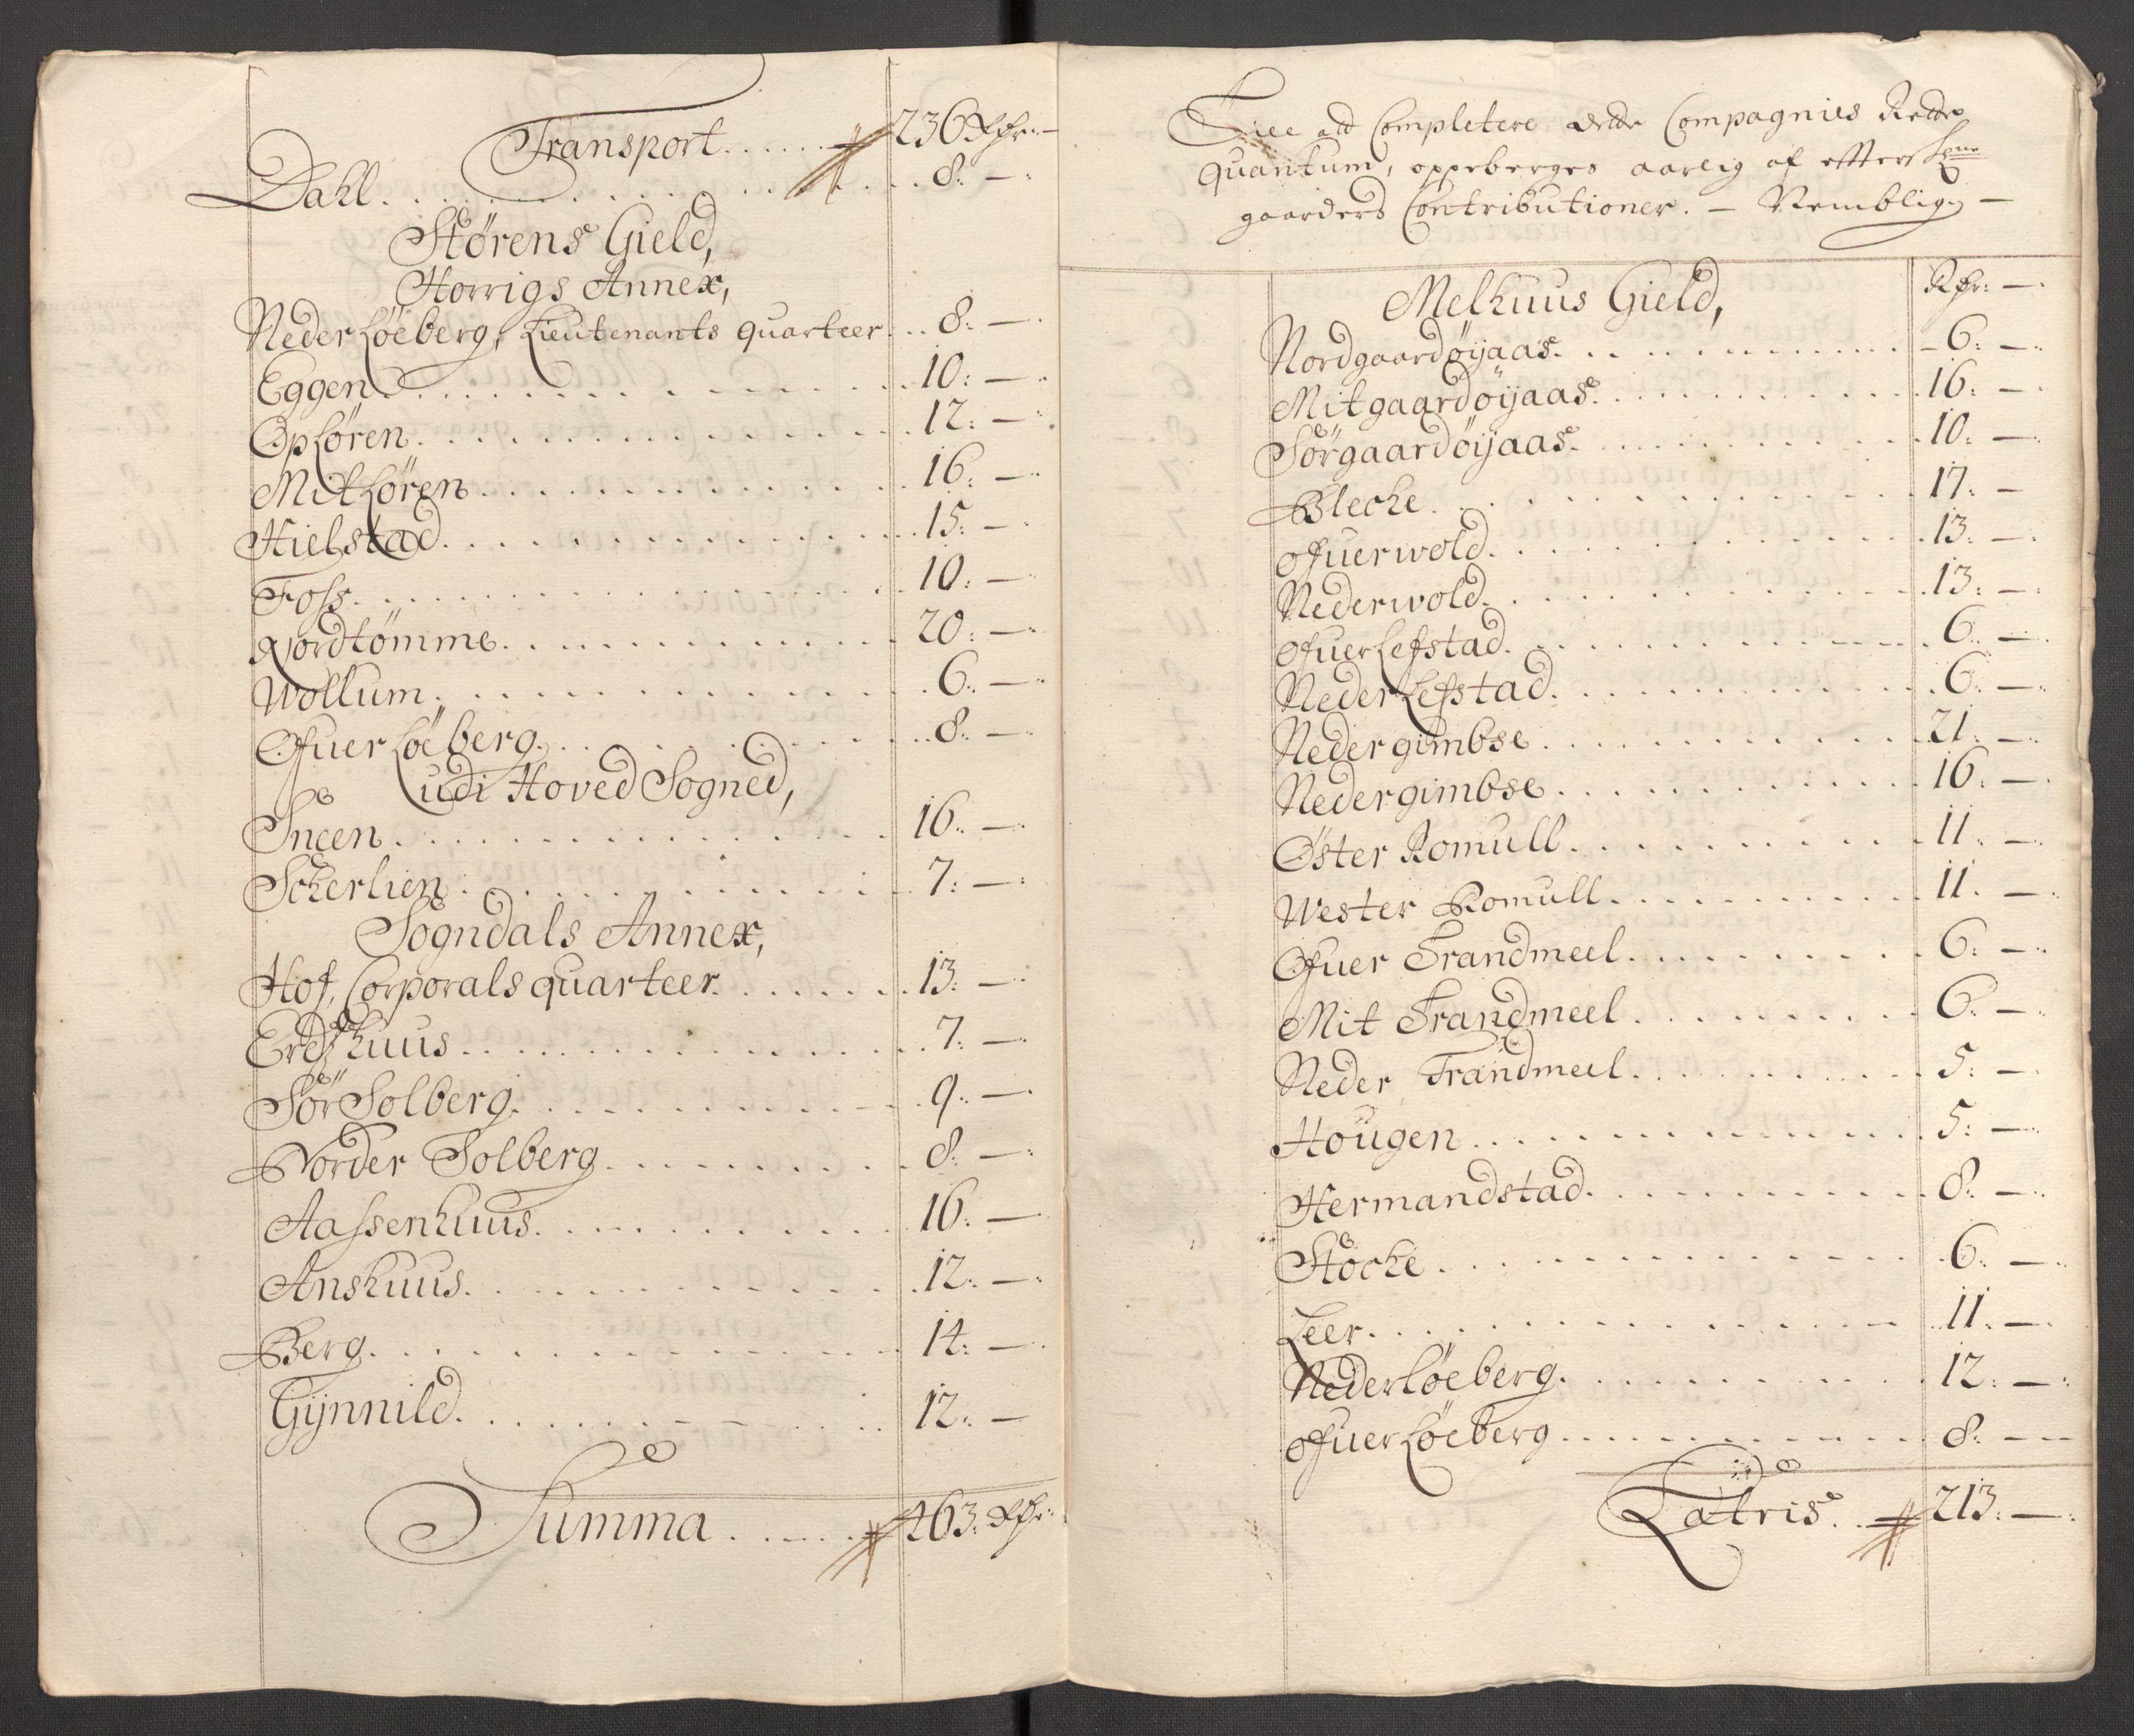 Transport...... 236 Rdr: —
Dahl............ 8: —
Störens Gield,
Horrigs Annex,
Neder Löeberg, Lieutenants quarteer... 8: —
Eggen............ 10: —
Op Lören............ 12: —
Mit Lören............ 16: —
Hielstad............ 15: —
Foss............ 10: —
Nordtömme............ 20: —
Wollum............ 6: —
Ofuer Löeberg............ 8: —
udi Hoved Sogned,
Sneen............ 16: —
Scherlien............ 7: —
Sogndals Annex,
Hof, Corporals quarteer....... 13: —
Erdzhuus............ 7: —
Sör Solberg............ 9: —
Norder Solberg......... 8: —
Aassenhuus............ 16: —
Anshuus............ 12: —
Berg............ 14: —
Gijnnild............ 12: —
Summa...... 463: Rdr:
Till att Completere dette Compagnies Rette
quantum, oppeberges aarlig af effterskne
gaarders Contributioner. — Nemblig —
Melhuus Gield, Rdr: —
Nordgaardöijaas............ 6: —
Mitgaardöijaas............ 16: —
Sörgaardöijaas............ 10: —
Blecke............ 17: —
Ofuerwold............ 13: —
Nederwold............ 13: —
Ofuer Lefstad............ 6: —
Neder Lefstad............ 6: —
Nedergimbse............ 21: —
Nedergimbse............ 16: —
Öster Romull............ 11: —
Wester Romull............ 11: —
Ofuer Trandmeel......... 6: —
Mit Trandmeel......... 6: —
Neder Trandmeel......... 5: —
Hougen............ 5: —
Hermandstad............ 8: —
Stöcke............ 6: —
Leer............ 11: —
Nederlöeberg............ 12: —
Ofuer Löeberg............ 8: —
Latris... 213: —